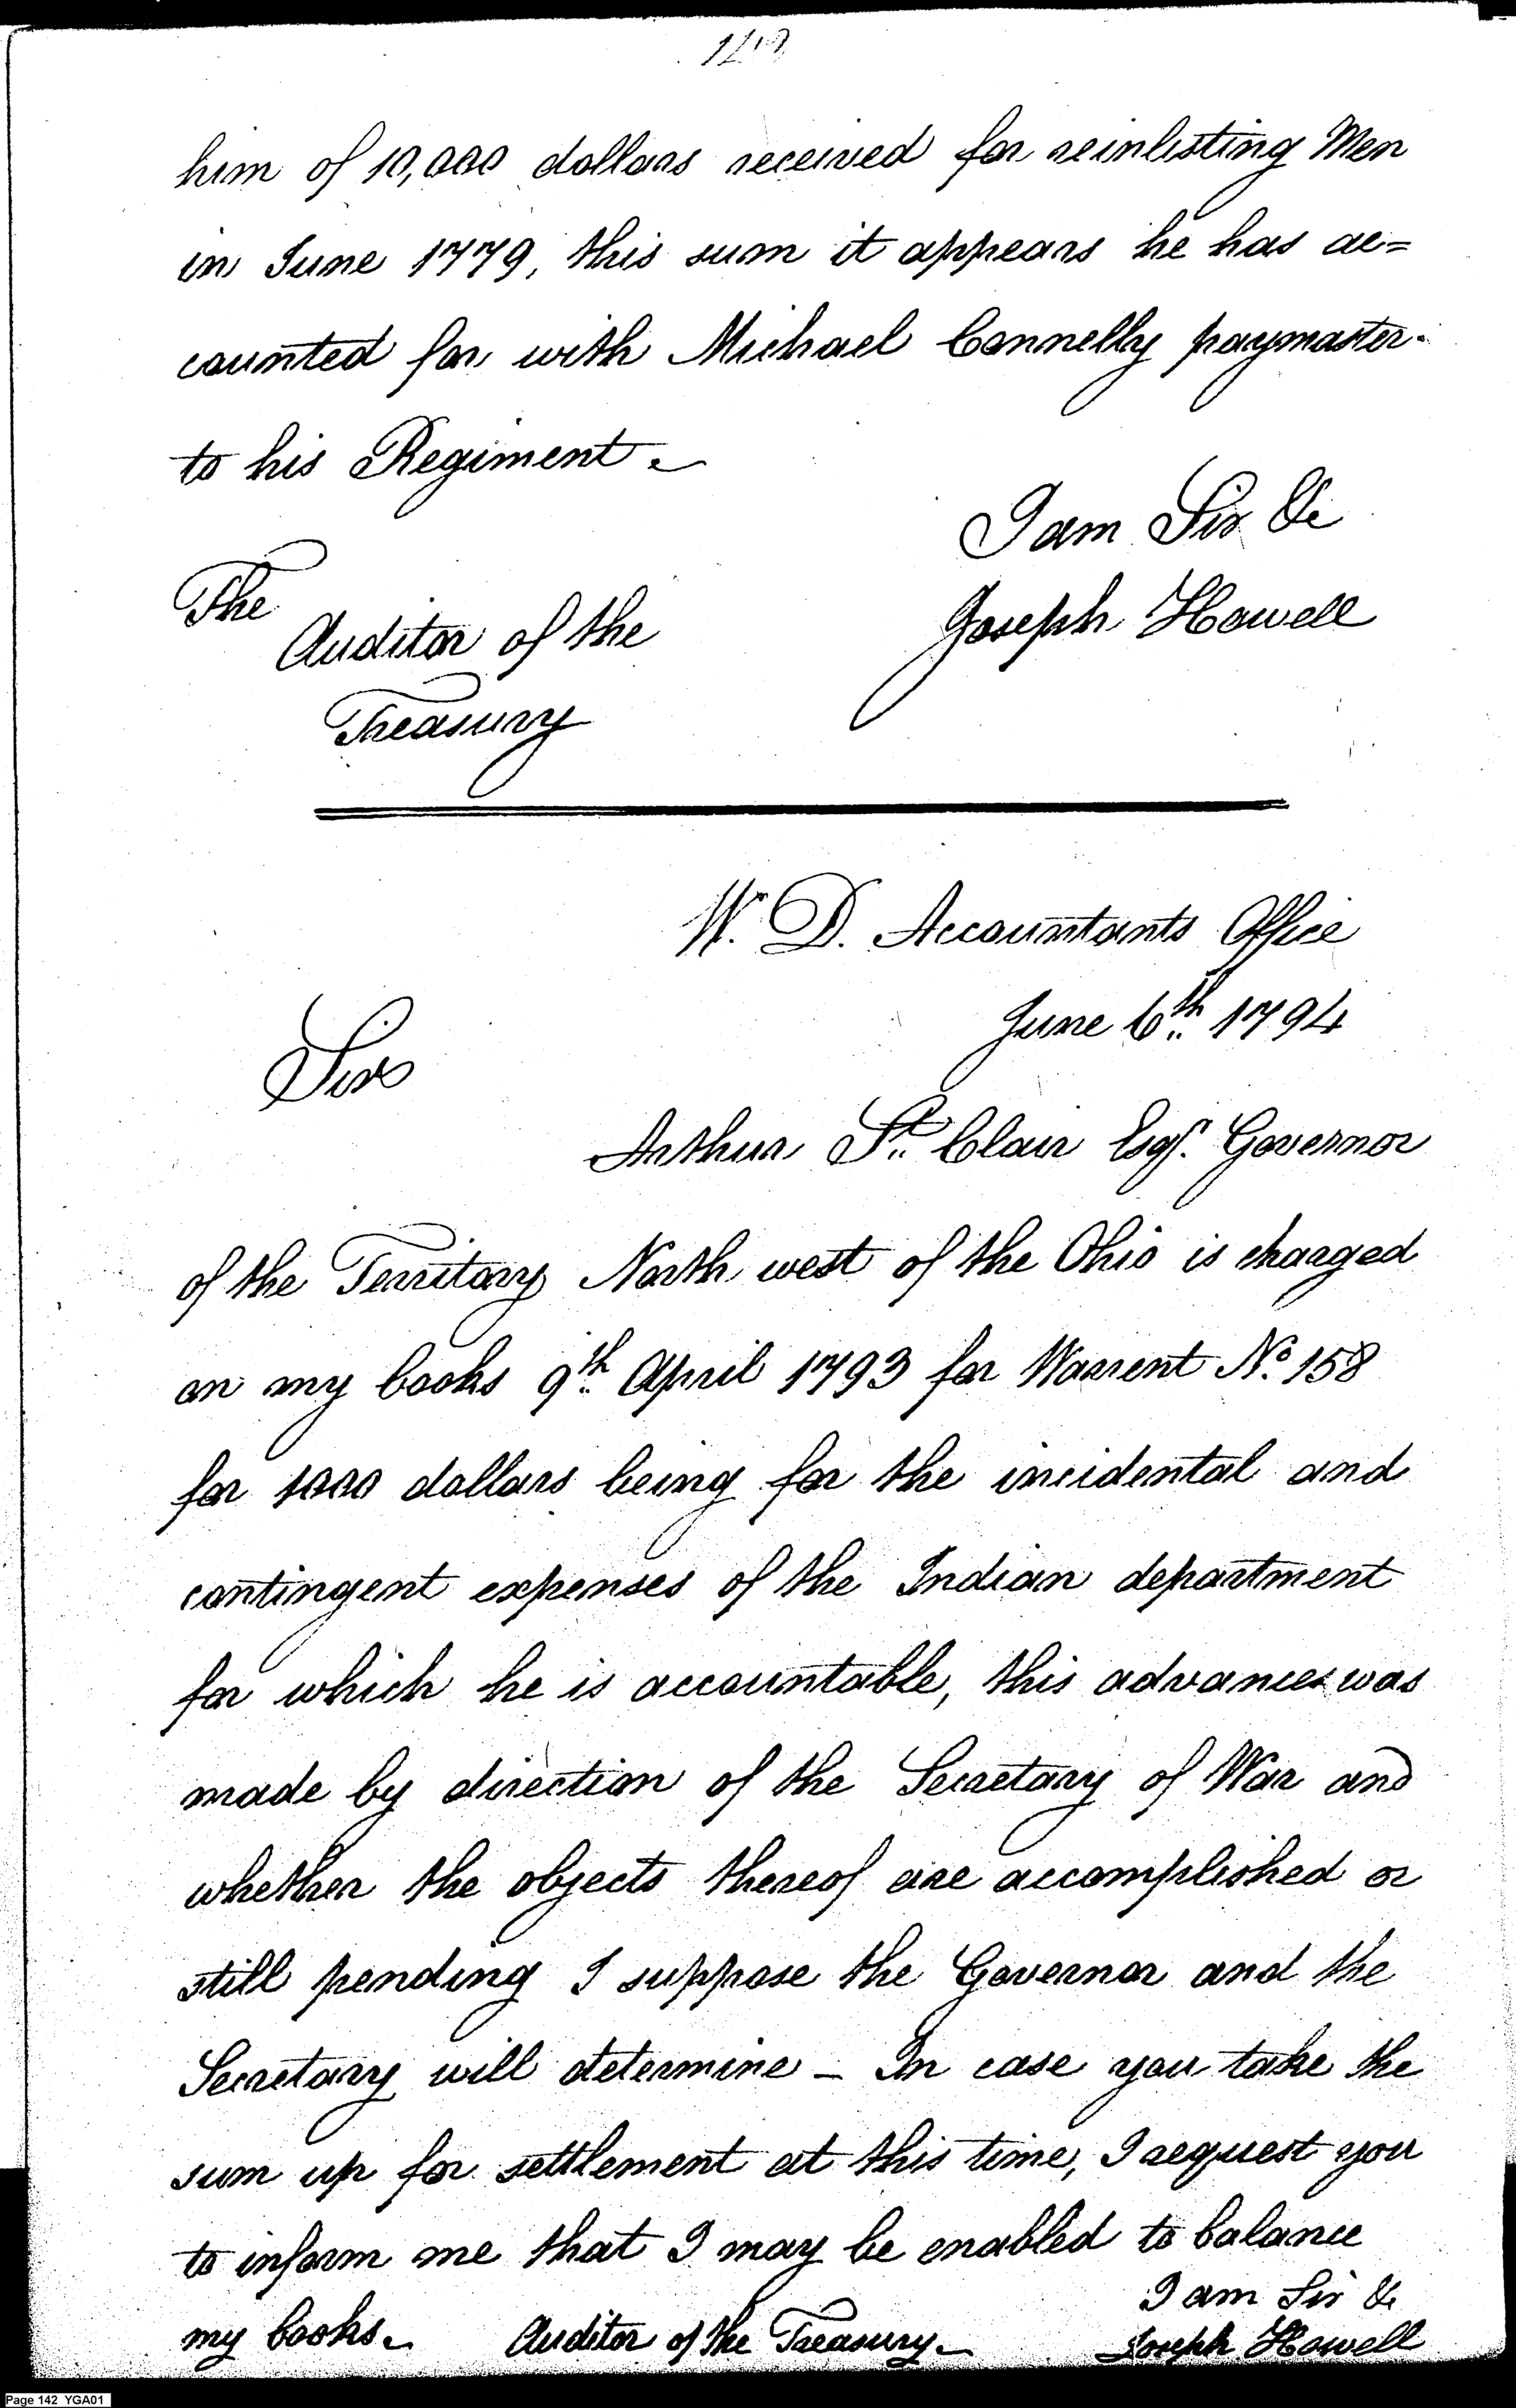 him of 10,000 dollars received for reinlisting Men
in June 1779, this sum it appears he has ac=
counted for with Michael Connelly paymaster
to his Regiment.
I am Sir &c
Joseph Howell
The
Auditor of the
Treasury
W. D. Accountants Office
June 6th 1794
Sir
Arthur St Clair Esqr. Governor
of the Territory North west of the Ohio is charged
on my books 9th April 1793 for Warrent No. 158
for 1000 dollars being for the incidental and
contingent expenses of the Indian department
for which he is accountable, this advances was
made by direction of the Secretary of War and
whether the objects thereof are accomplished or
still pending I suppose the Governor and the
Secretary will determine – In case you take the
sum up for settlement at this time, I request you
to inform me that I may be enabled to balance
my books.
I am Sir &c
Auditor of the Treasury
Joseph Howell
Page 142 YGA01